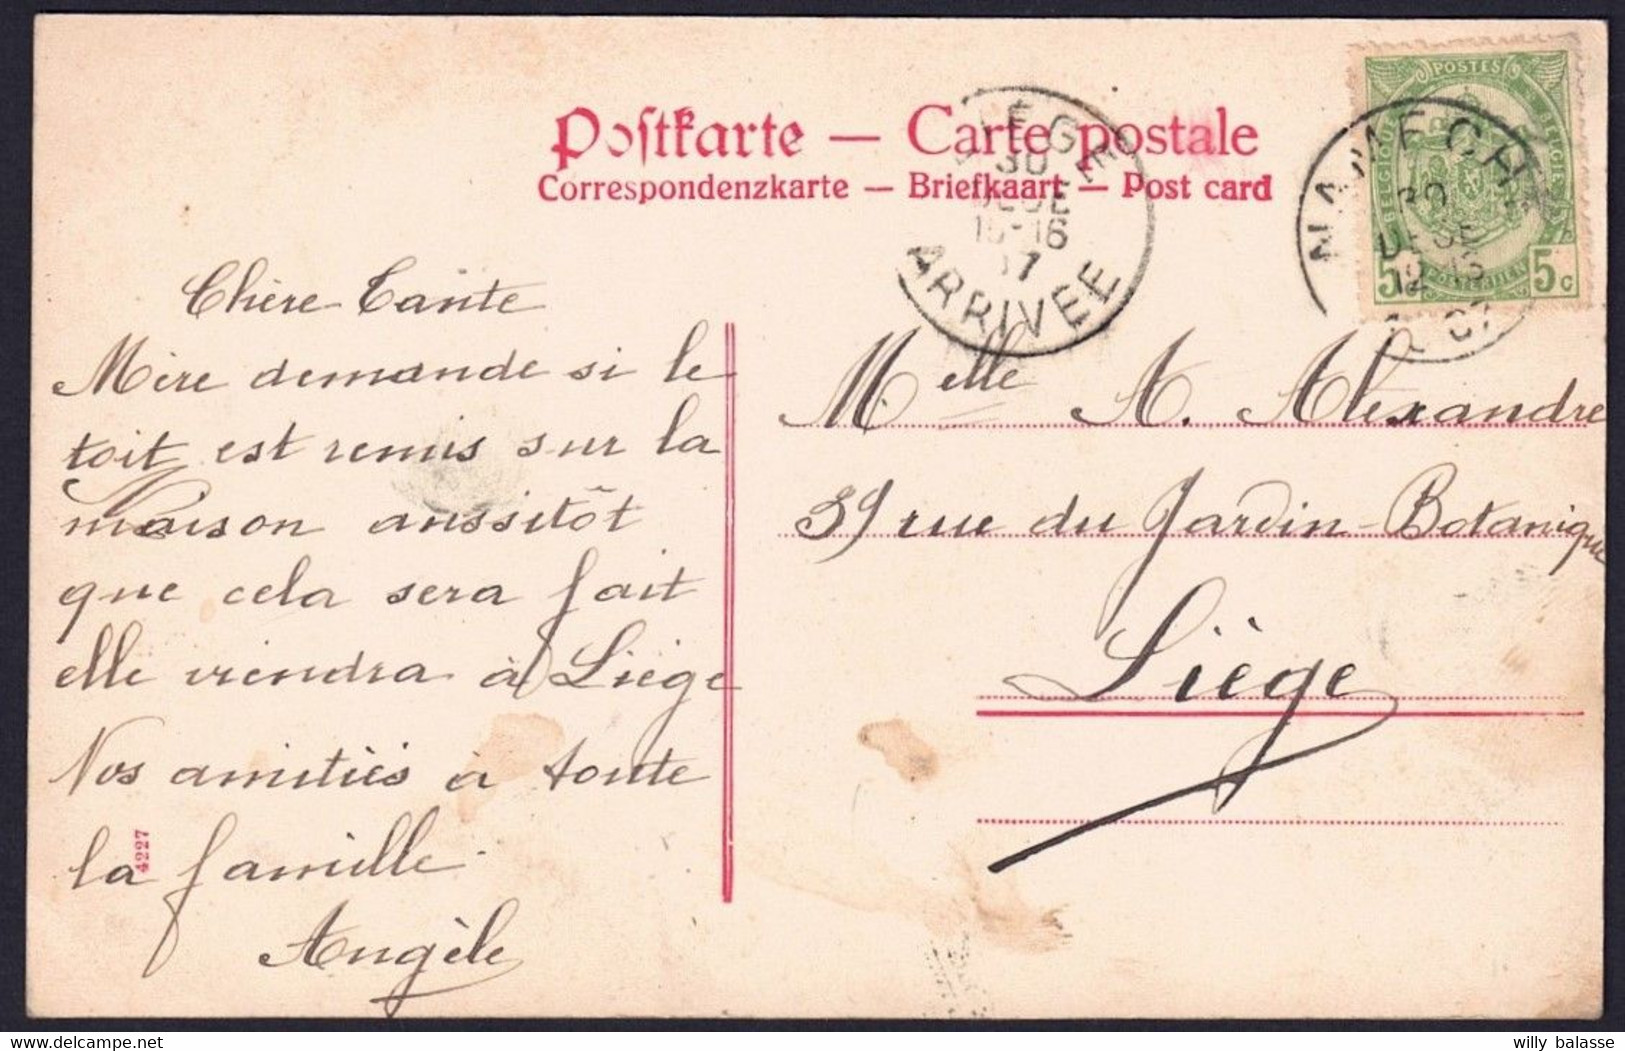 Postkarte — Carte postale
Correspondenzkarte — Briefkaart — Post card
POSTES
BELGIQUE
BELGIË
5 POSTERIJEN 5 c
NAMECHE
30
DECE
07
30
DECE
15-16
07
ARRIVEE
Chère Tante
Mère demande si le
toit est remis sur la
maison aussitôt
que cela sera fait
elle viendra à Liège
Nos amitiés à toute
la famille.
Angèle
4227
Melle A. Alexandre
39 rue du Jardin-Botanique
Liège
willy balasse